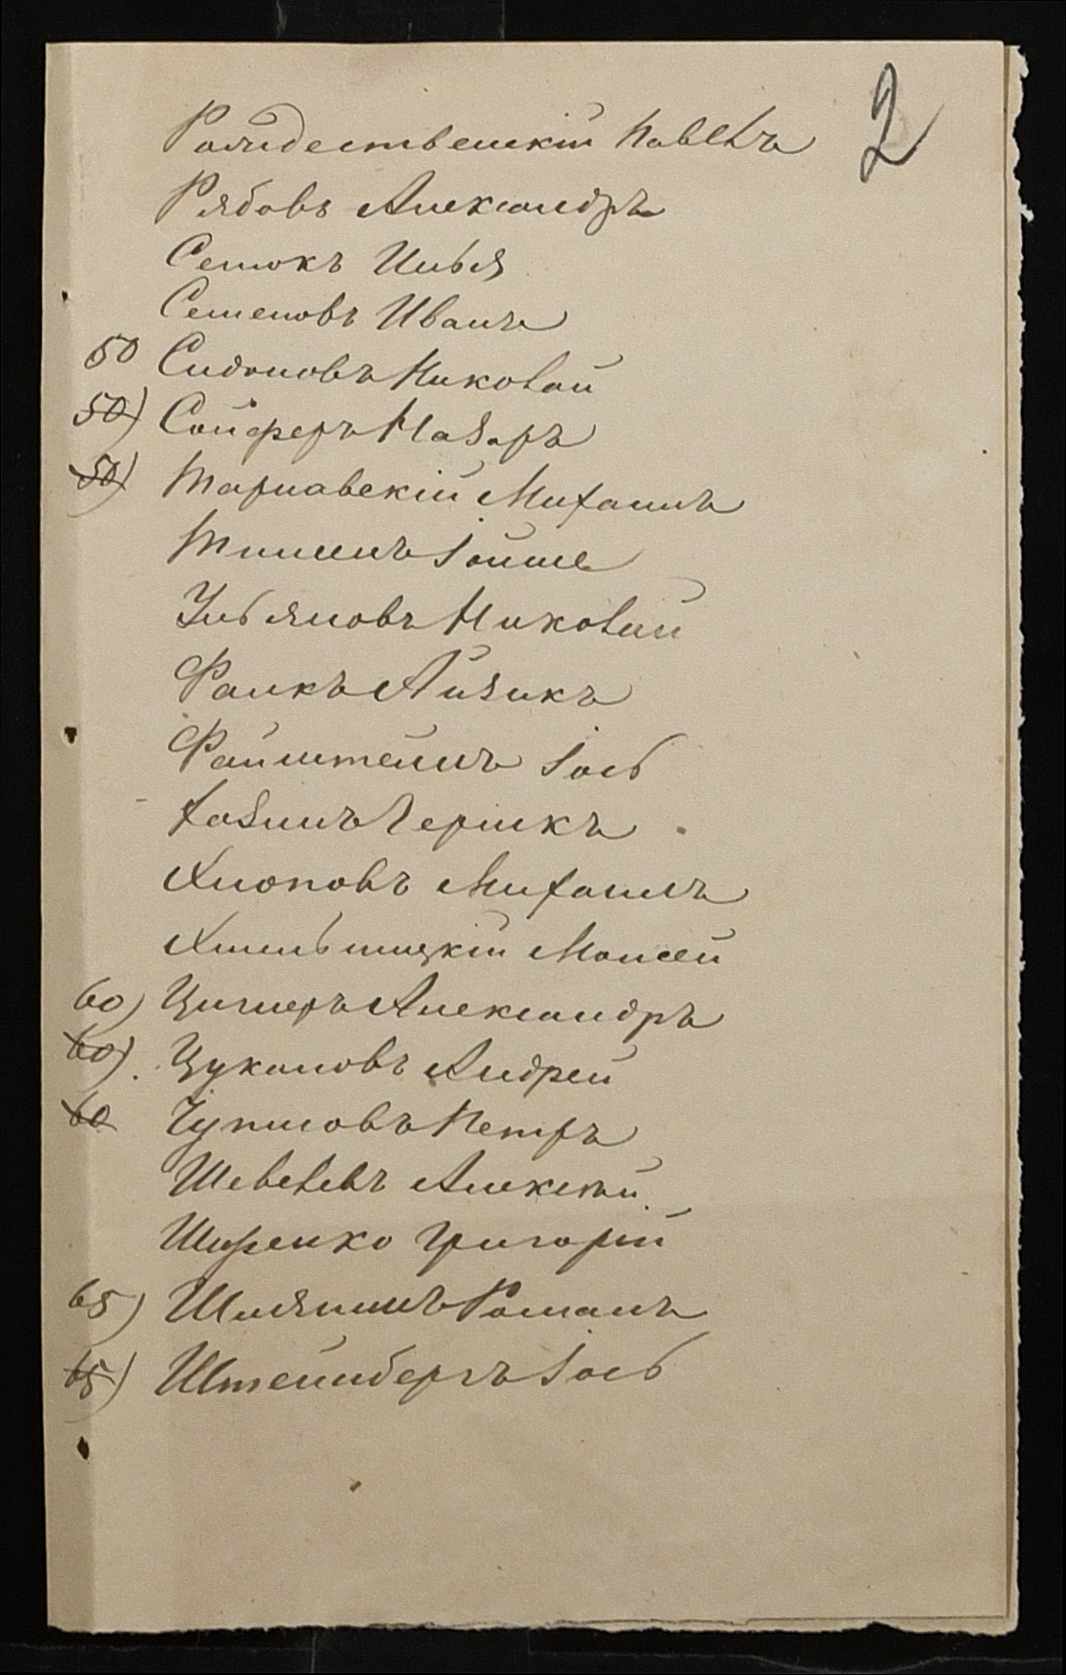 2
Рождественскій Павелъ
Рябовъ Александръ
Сетокъ Илья
Семеновъ Иванъ
50 Сидоновъ Николай
50) Сойферъ Назаръ
50) Тарнавскій Михаилъ
Тишинъ Іойше
Ульяновъ Николай
Фанкъ Айзикъ
Файнштейнъ Іось
Хазинъ Гершкъ
Хлоповъ Михаилъ
Хмельницкій Моисей
60) Циглеръ Александръ
60). Цукановъ Андрей
60 Чупиловъ Петръ
Шевелевъ Алексѣй
Шуренко Григорій
65) Шляпинъ Романъ
65) Штейнбергъ Іось